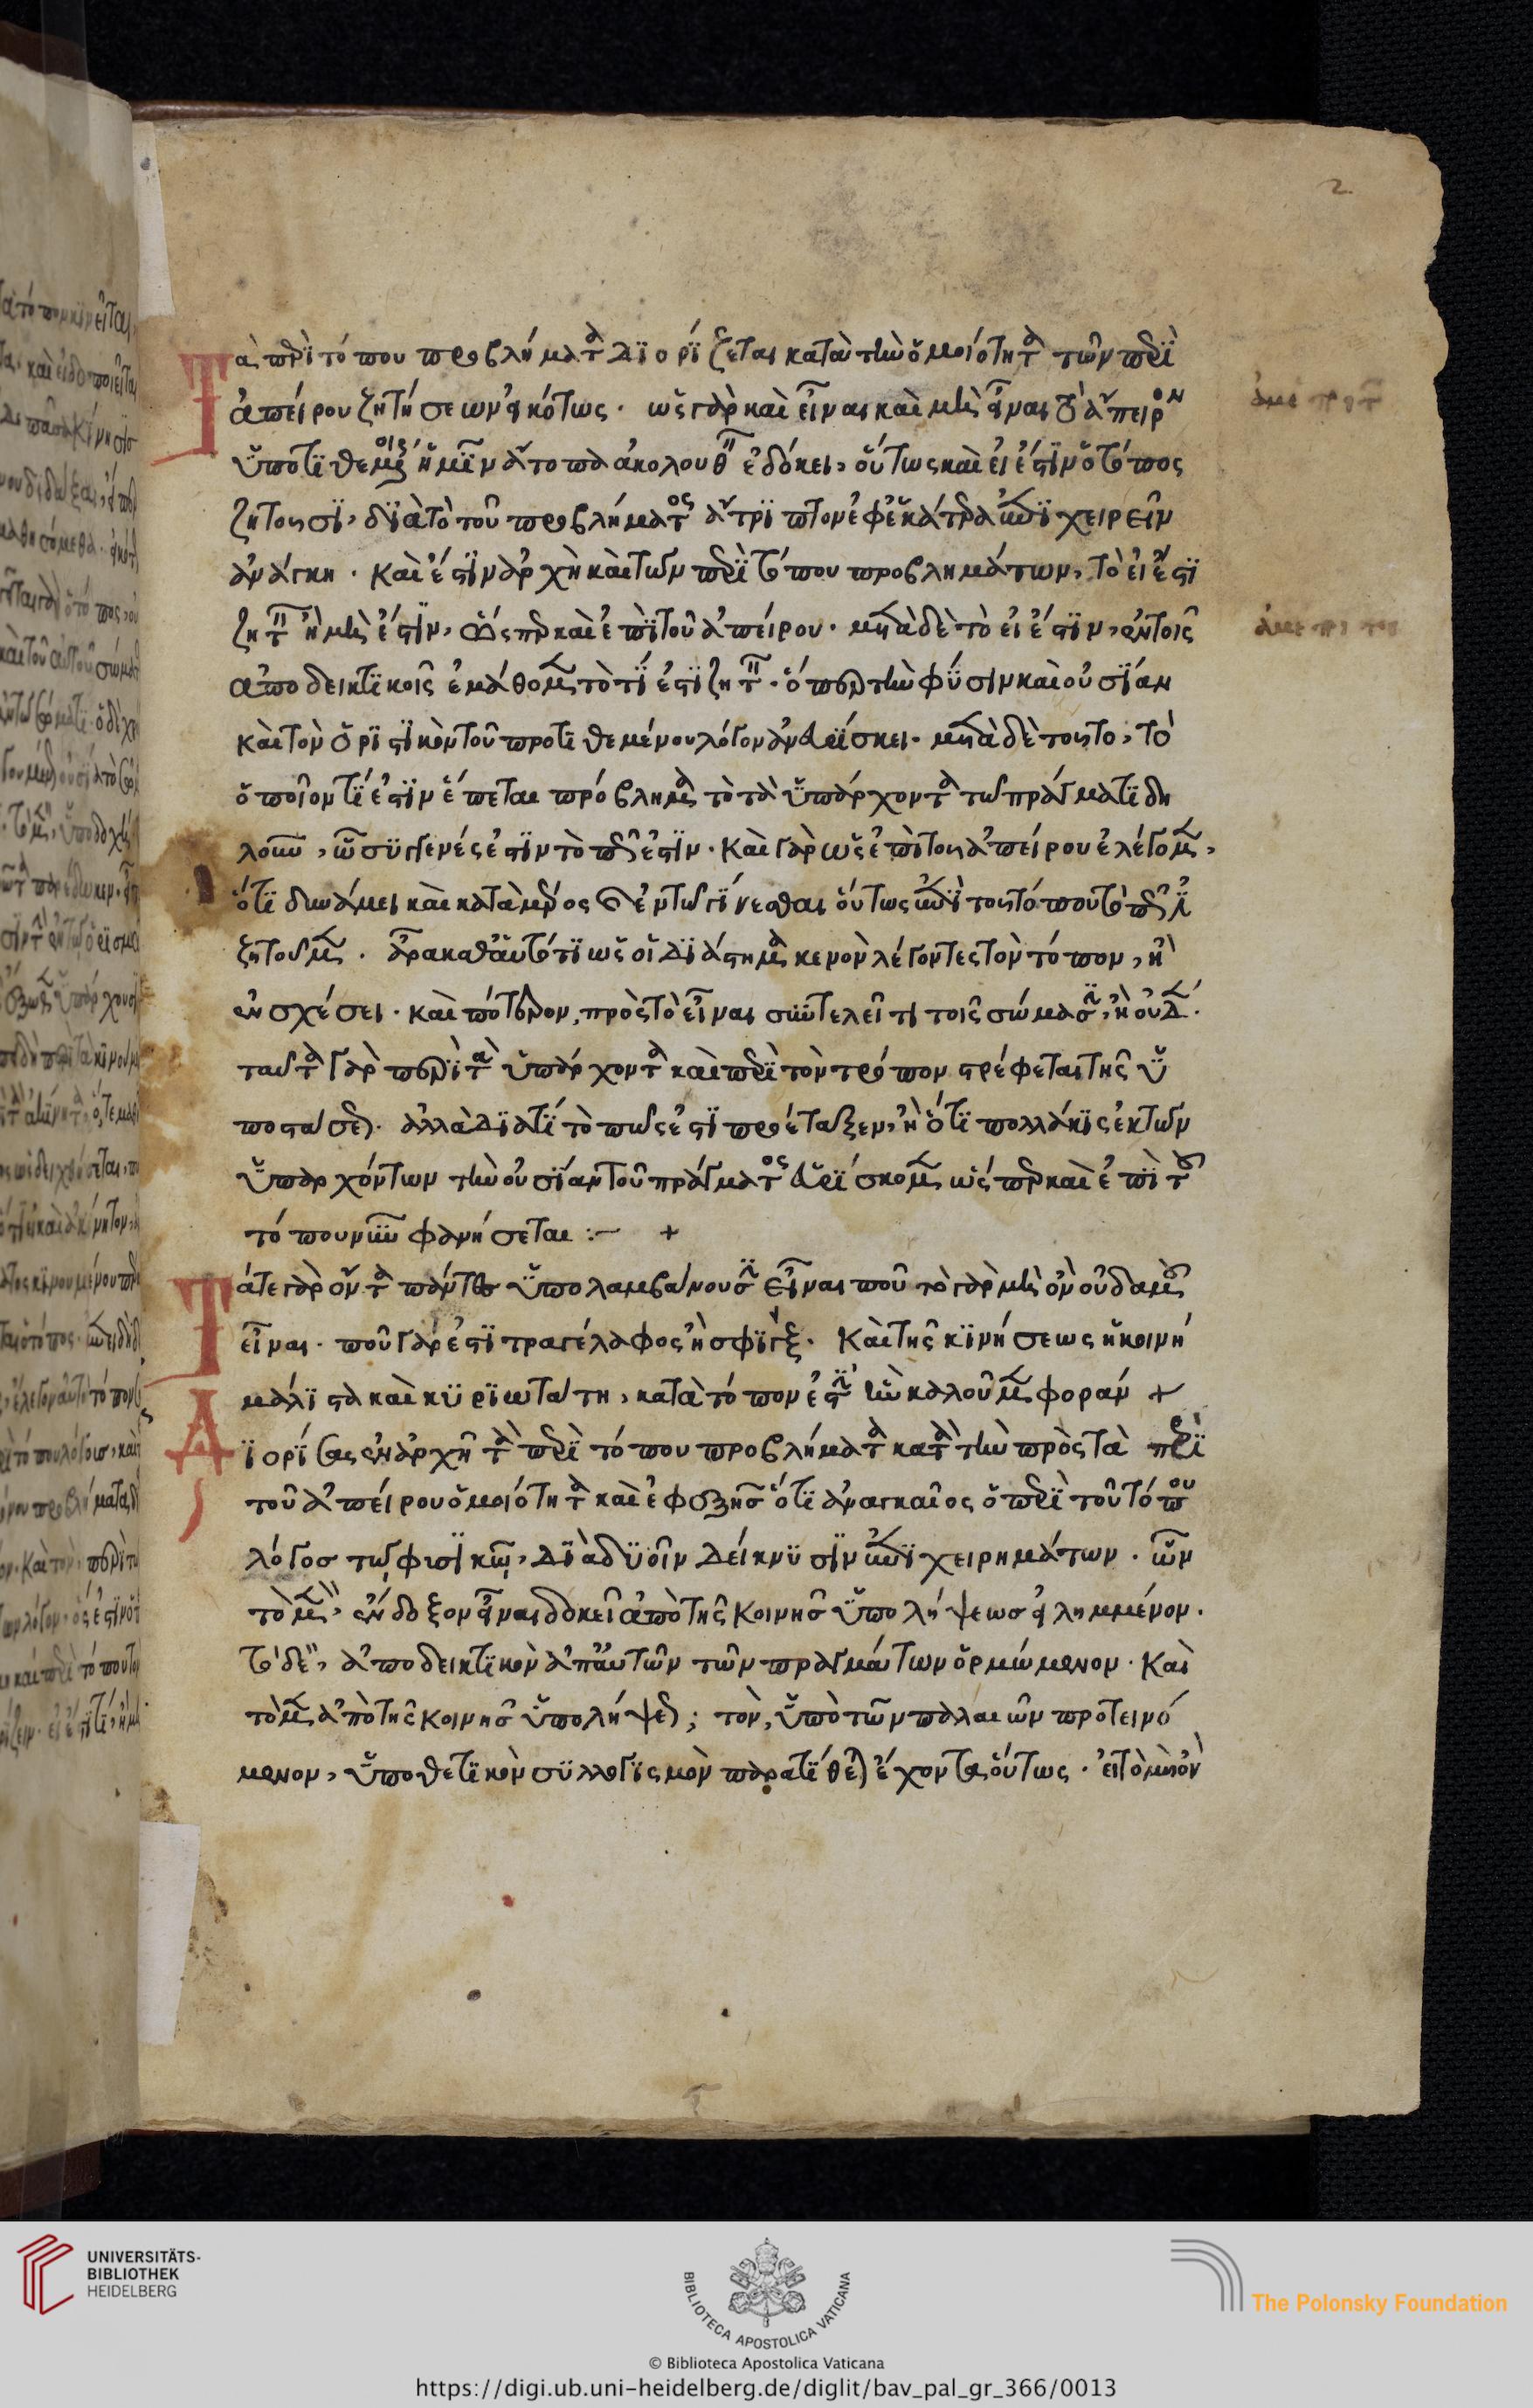 2
Τὰ περὶ τόπου προβλήματα διορίζεται κατὰ τὴν ὁμοιότητα τῶν περὶ
ἀπείρου ζητήσεων εἰκότως· ὡς γὰρ καὶ εἶναι καὶ μὴ εἶναι τὸ ἄπειρον
ὑποτιθεμένοις ἡμῖν ἄτοπα ἀκολουθεῖν ἐδόκει, οὕτως καὶ εἰ ἔστιν ὁ τόπος
ζητοῦσι, διὰ τὸ τοῦ προβλήματος ἄτριπτον ἐφ' ἑκάτερα ἐπιχειρεῖν
ἀνάγκη· καὶ ἔστιν ἀρχὴ καὶ τῶν περὶ τόπου προβλημάτων, τὸ εἰ ἔστι
ζητεῖν ἢ μὴ ἔστιν, ὥσπερ καὶ ἐπὶ τοῦ ἀπείρου· μετὰ δὲ τὸ εἰ ἔστιν, ἐν τοῖς
ἀποδεικτικοῖς ἐμάθομεν τὸ τί ἐστι ζητεῖν· ὅπερ τὴν φύσιν καὶ οὐσίαν
καὶ τὸν ὁριστικὸν τοῦ προτιθεμένου λόγον ἀνευρίσκει· μετὰ δὲ τοῦτο, τὸ
ὁποῖόν τί ἐστιν ἕπεται πρόβλημα τὸ τὰ ὑπάρχοντα τῷ πράγματι δη
λοῦν, ᾧ συγγενές ἐστιν τὸ πῶς ἐστιν· καὶ γὰρ ὡς ἐπὶ τοῦ ἀπείρου ἐλέγομεν,
ὅτι δυνάμει καὶ κατὰ μέρος ἐν τῷ γίνεσθαι οὕτως ἐπὶ τοῦ τόπου τὸ πῶς ἐστι
ζητοῦμεν· ἆρα καθ' αὑτό τι ὡς οἱ διάστημα κενὸν λέγοντες τὸν τόπον, ἢ
ἐν σχέσει· καὶ πότερον, πρὸς τὸ εἶναι συντελεῖ τι τοῖς σώμασιν, ἢ οὐδέν·
ταῦτα γὰρ περὶ τὰ ὑπάρχοντα καὶ περὶ τὸν τρόπον στρέφεται τῆς ὑ
ποστάσεως· ἀλλὰ διατί τὸ πῶς ἐστι προέταξεν, ἢ ὅτι πολλάκις ἐκ τῶν
ὑπαρχόντων τὴν οὐσίαν τοῦ πράγματος εὑρίσκομεν ὥσπερ καὶ ἐπὶ τοῦ
τόπου νῦν φανήσεται :— +
Τά τε γὰρ ὄντα πάντες ὑπολαμβάνουσιν εἶναι που τὸ γὰρ μὴ ὂν οὐδαμοῦ
εἶναι· ποῦ γάρ ἐστι τραγέλαφος ἢ σφίγξ· καὶ τῆς κινήσεως ἡ κοινὴ
μάλιστα καὶ κυριωτάτη, κατὰ τόπον ἐστὶν ἣν καλοῦμεν φοράν +
Διορίσας ἐν ἀρχῇ τὰ περὶ τόπου προβλήματα κατὰ τὴν πρὸς τὰ περὶ
τοῦ ἀπείρου ὁμοιότητα καὶ ἐφεξῆς ὅτι ἀναγκαῖος ὁ περὶ τοῦ τόπου
λόγος τῷ φισικῷ, διὰ δυοῖν δείκνυσιν ἐπιχειρημάτων· ὧν
τὸ μὲν, ἔνδοξον εἶναι δοκεῖ ἀπὸ τῆς κοινῆς ὑπολήψεως εἰλημμένον·
τὸ δὲ, ἀποδεικτικὸν ἀπ' αὐτῶν τῶν πραγμάτων ὁρμώμενον· καὶ
τὸ μὲν ἀπὸ τῆς κοινῆς ὑπολήψεως; τὸν, ὑπὸ τῶν παλαιῶν προτεινό
μενον, ὑποθετικὸν συλλογισμὸν παρατίθεται ἔχοντα οὕτως· εἰ τὸ μὴ ὂν
UNIVERSITÄTS-
BIBLIOTHEK
HEIDELBERG
BIBLIOTECA APOSTOLICA VATICANA
© Biblioteca Apostolica Vaticana
The Polonsky Foundation
https://digi.ub.uni-heidelberg.de/diglit/bav_pal_gr_366/0013